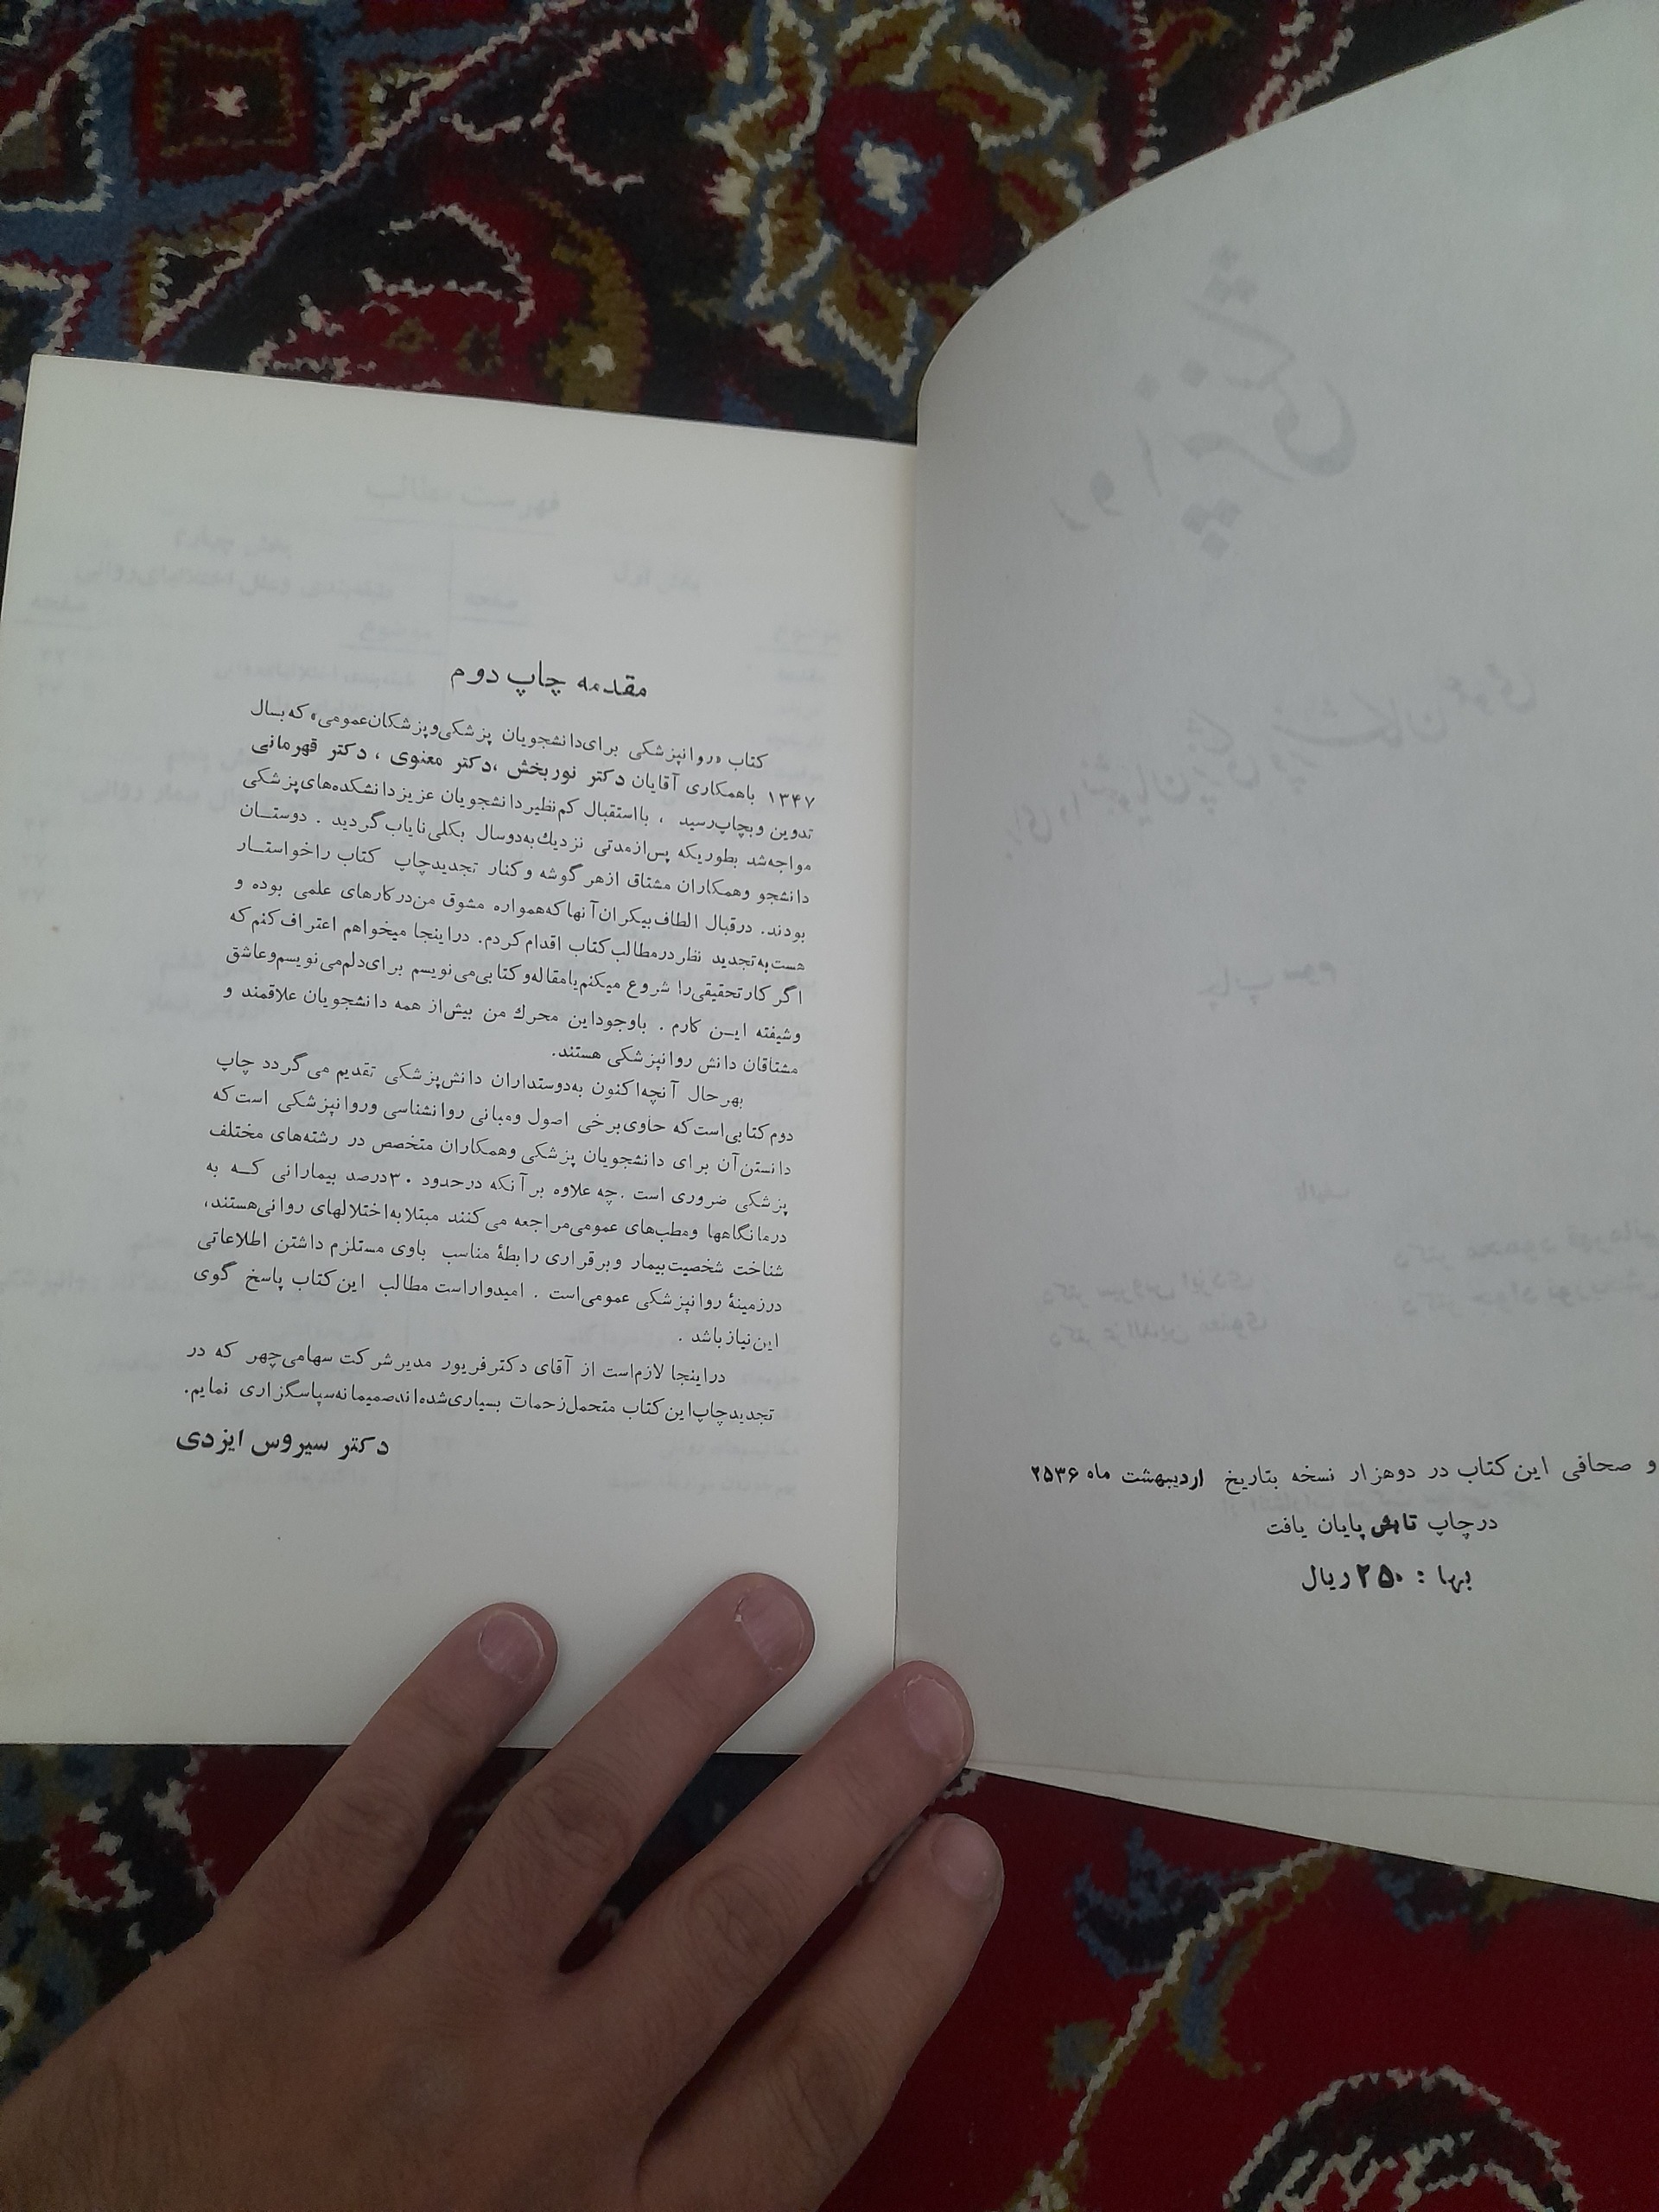 و صحافی این کتاب در دوهزار نسخه بتاریخ اردیبهشت ماه ۲۵۳۶
درچاپ تابش پایان یافت
بها : ۲۵۰ ریال
مقدمه چاپ دوم
کتاب «روانپزشکی برای دانشجویان پزشکی و پزشکان عمومی» که بسال
۱۳۴۷ باهمکاری آقایان دکتر نوربخش ، دکتر معنوی ، دکتر قهرمانی
تدوین وبچاپ رسید ، بااستقبال کم نظیر دانشجویان عزیز دانشکده‌های پزشکی
مواجه شد بطوریکه پس از مدتی نزدیك به دوسال بکلی نایاب گردید . دوستان
دانشجو وهمکاران مشتاق ازهر گوشه و کنار تجدید چاپ کتاب را خواستار
بودند. درقبال الطاف بیکران آنها که همواره مشوق من در کارهای علمی بوده و
هست به تجدید نظر در مطالب کتاب اقدام کردم. دراینجا میخواهم اعتراف کنم که
اگر کار تحقیقی را شروع میکنم یا مقاله و کتابی می نویسم برای دلم می نویسم و عاشق
وشیفته ایـن کارم . باوجود این محرك من بیش از همه دانشجویان علاقمند و
مشتاقان دانش روانپزشکی هستند.
بهرحال آنچه اکنون به دوستداران دانش پزشکی تقدیم می گردد چاپ
دوم کتابی است که حاوی برخی اصول ومبانی روانشناسی وروانپزشکی است که
دانستن آن برای دانشجویان پزشکی وهمکاران متخصص در رشته‌های مختلف
پزشکی ضروری است . چه علاوه بر آنکه درحدود ۳۰درصد بیمارانی کـه به
درمانگاهها ومطب‌های عمومی مراجعه می کنند مبتلا به اختلالهای روانی هستند،
شناخت شخصیت بیمار وبرقراری رابطهٔ مناسب باوی مستلزم داشتن اطلاعاتی
درزمینهٔ روانپزشکی عمومی است . امیدوار است مطالب این کتاب پاسخ گوی
این نیاز باشد .
دراینجا لازم است از آقای دکتر فریور مدیر شرکت سهامی چهر که در
تجدید چاپ این کتاب متحمل زحمات بسیاری شده‌اند صمیمانه سپاسگزاری نمایم.
دکتر سیروس ایزدی